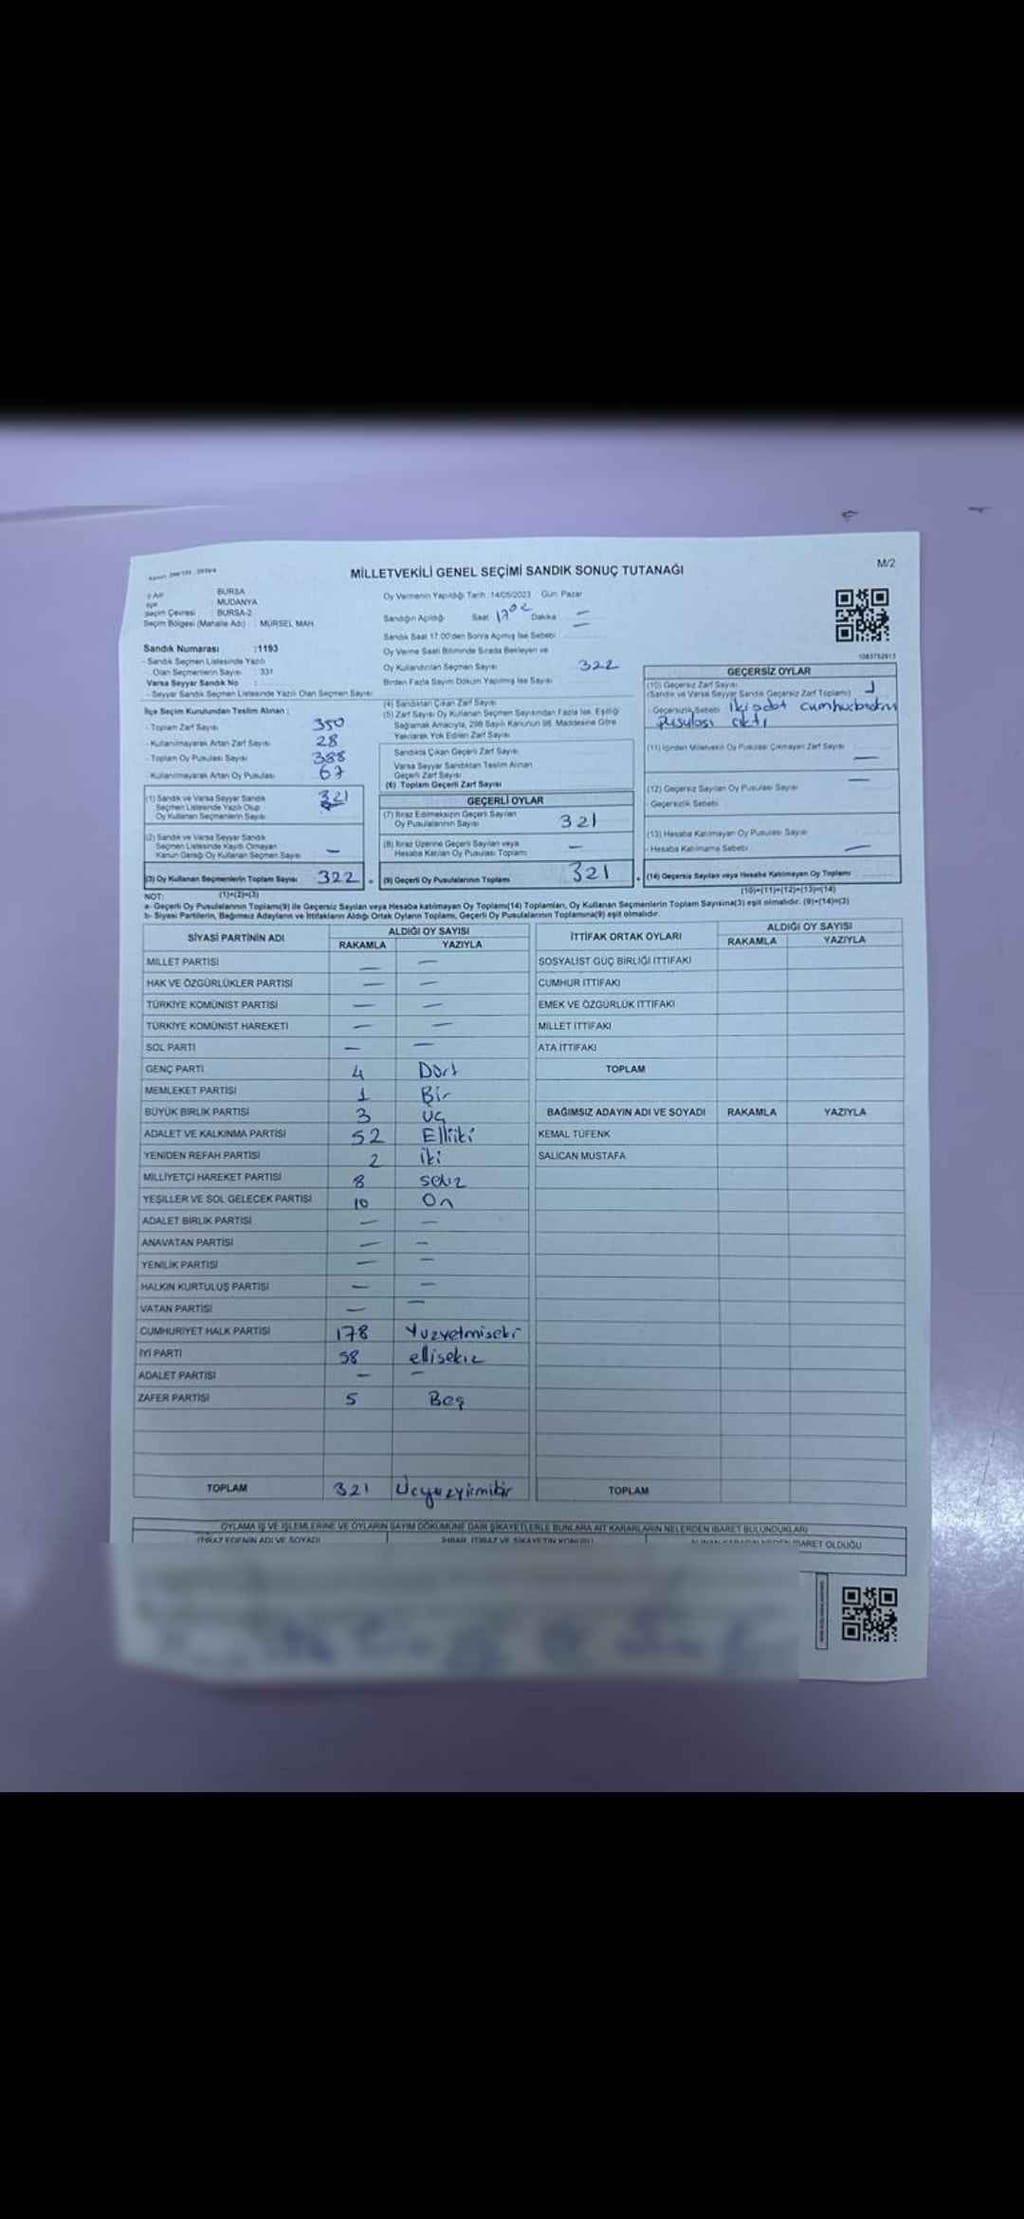 MİLLETVEKİLİ GENEL SEÇİMİ SANDIK SONUÇ TUTANAĞI
M/2
BURSA
MUDANYA
Seçim Çevresi : BURSA-2
Seçim Bölgesi (Mahalle Adı) : MÜRSEL MAH
Oy Vermenin Yapıldığı Tarih :14/05/2023 Gün: Pazar
Sandığın Açıldığı Saat 17 02 Dakika —
Sandık Saat 17:00'den Sonra Açılmış İse Sebebi
Oy Verme Saati Bitiminde Sırada Bekleyen ve
Oy Kullandırılan Seçmen Sayısı 322
Birden Fazla Sayım Döküm Yapılmış İse Sayısı
1083752613
Sandık Numarası :1193
- Sandık Seçmen Listesinde Yazılı
Olan Seçmenlerin Sayısı : 331
Varsa Seyyar Sandık No :
- Seyyar Sandık Seçmen Listesinde Yazılı Olan Seçmen Sayısı
İlçe Seçim Kurulundan Teslim Alınan ;
- Toplam Zarf Sayısı 350
- Kullanılmayarak Artan Zarf Sayısı 28
- Toplam Oy Pusulası Sayısı 388
- Kullanılmayarak Artan Oy Pusulası 67
(1) Sandık ve Varsa Seyyar Sandık
Seçmen Listesinde Yazılı Olup
Oy Kullanan Seçmenlerin Sayısı 321
(2) Sandık ve Varsa Seyyar Sandık
Seçmen Listesinde Kayıtlı Olmayan
Kanun Gereği Oy Kullanan Seçmen Sayısı —
(3) Oy Kullanan Seçmenlerin Toplam Sayısı 322
(4) Sandıktan Çıkan Zarf Sayısı
(5) Zarf Sayısı Oy Kullanan Seçmen Sayısından Fazla İse, Eşitliği
Sağlamak Amacıyla, 298 Sayılı Kanunun 98. Maddesine Göre
Yakılarak Yok Edilen Zarf Sayısı
Sandıkta Çıkan Geçerli Zarf Sayısı
Varsa Seyyar Sandıktan Teslim Alınan
Geçerli Zarf Sayısı
(6) Toplam Geçerli Zarf Sayısı
GEÇERLİ OYLAR
(7) İtiraz Edilmeksizin Geçerli Sayılan
Oy Pusulalarının Sayısı 321
(8) İtiraz Üzerine Geçerli Sayılan veya
Hesaba Katılan Oy Pusulası Toplamı —
(9) Geçerli Oy Pusulalarının Toplamı 321
GEÇERSİZ OYLAR
(10) Geçersiz Zarf Sayısı
(Sandık ve Varsa Seyyar Sandık Geçersiz Zarf Toplamı) 1
- Geçersizlik Sebebi İki adet
pusulası çıktı
(11) İçinden Milletvekili Oy Pusulası Çıkmayan Zarf Sayısı —
(12) Geçersiz Sayılan Oy Pusulası Sayısı —
Geçersizlik Sebebi
(13) Hesaba Katılmayan Oy Pusulası Sayısı
- Hesaba Katılmama Sebebi —
(14) Geçersiz Sayılan veya Hesaba Katılmayan Oy Toplamı
NOT: (1)+(2)=(3)
(10)+(11)+(12)+(13)=(14)
a- Geçerli Oy Pusulalarının Toplamı(9) ile Geçersiz Sayılan veya Hesaba katılmayan Oy Toplamı(14) Toplamları, Oy Kullanan Seçmenlerin Toplam Sayısına(3) eşit olmalıdır. (9)+(14)=(3)
b- Siyasi Partilerin, Bağımsız Adayların ve İttifakların Aldığı Ortak Oyların Toplamı, Geçerli Oy Pusulalarının Toplamına(9) eşit olmalıdır.
SİYASİ PARTİNİN ADI ALDIĞI OY SAYISI
RAKAMLA YAZIYLA
MİLLET PARTİSİ — —
HAK VE ÖZGÜRLÜKLER PARTİSİ — —
TÜRKİYE KOMÜNİST PARTİSİ — —
TÜRKİYE KOMÜNİST HAREKETİ — —
SOL PARTİ — —
GENÇ PARTİ 4 Dört
MEMLEKET PARTİSİ 1 Bir
BÜYÜK BİRLİK PARTİSİ 3 Üç
ADALET VE KALKINMA PARTİSİ 52 Elliiki
YENİDEN REFAH PARTİSİ 2 İki
MİLLİYETÇİ HAREKET PARTİSİ 8 Sekiz
YEŞİLLER VE SOL GELECEK PARTİSİ 10 On
ADALET BİRLİK PARTİSİ — —
ANAVATAN PARTİSİ — —
YENİLİK PARTİSİ — —
HALKIN KURTULUŞ PARTİSİ — —
VATAN PARTİSİ — —
CUMHURİYET HALK PARTİSİ 178
İYİ PARTİ 58 ellisekiz
ADALET PARTİSİ — —
ZAFER PARTİSİ 5 Beş
TOPLAM 321 Üçyüzyirmibir
İTTİFAK ORTAK OYLARI ALDIĞI OY SAYISI
RAKAMLA YAZIYLA
SOSYALİST GÜÇ BİRLİĞİ İTTİFAKI
CUMHUR İTTİFAKI
EMEK VE ÖZGÜRLÜK İTTİFAKI
MİLLET İTTİFAKI
ATA İTTİFAKI
TOPLAM
BAĞIMSIZ ADAYIN ADI VE SOYADI RAKAMLA YAZIYLA
KEMAL TÜFENK
SALİCAN MUSTAFA
TOPLAM
OYLAMA İŞ VE İŞLEMLERİNE VE OYLARIN SAYIM DÖKÜMÜNE DAİR ŞİKAYETLERLE BUNLARA AİT KARARLARIN NELERDEN İBARET BULUNDUKLARI
İTİRAZ EDENİN ADI VE SOYADI